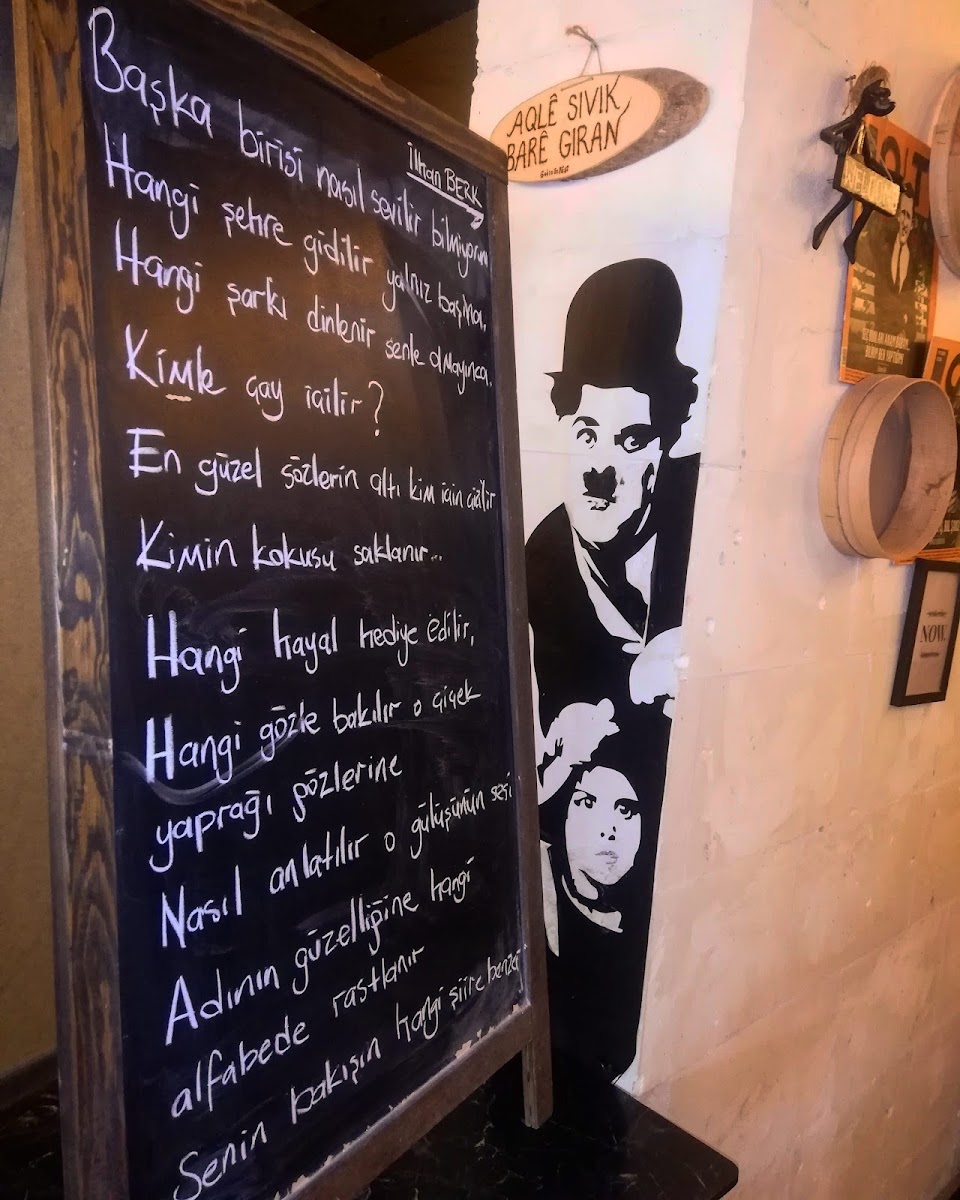 Başka birisi nasıl sevilir bilmiyorum
İlhan BERK
Hangi şehre gidilir yalnız başına,
Hangi şarkı dinlenir senle olmayınca.
Kimle çay içilir?
En güzel sözlerin altı kim için çizilir
Kimin kokusu saklanır...
Hangi hayal hediye edilir,
Hangi gözle bakılır o çiçek
yaprağı gözlerine
Nasıl anlatılır o gülüşünün sesi
Adının güzelliğine hangi
alfabede rastlanır
Senin bakışın hangi şiire benzer
AQLÊ SIVIK
BARÊ GIRAN
WELCOME
NOW.